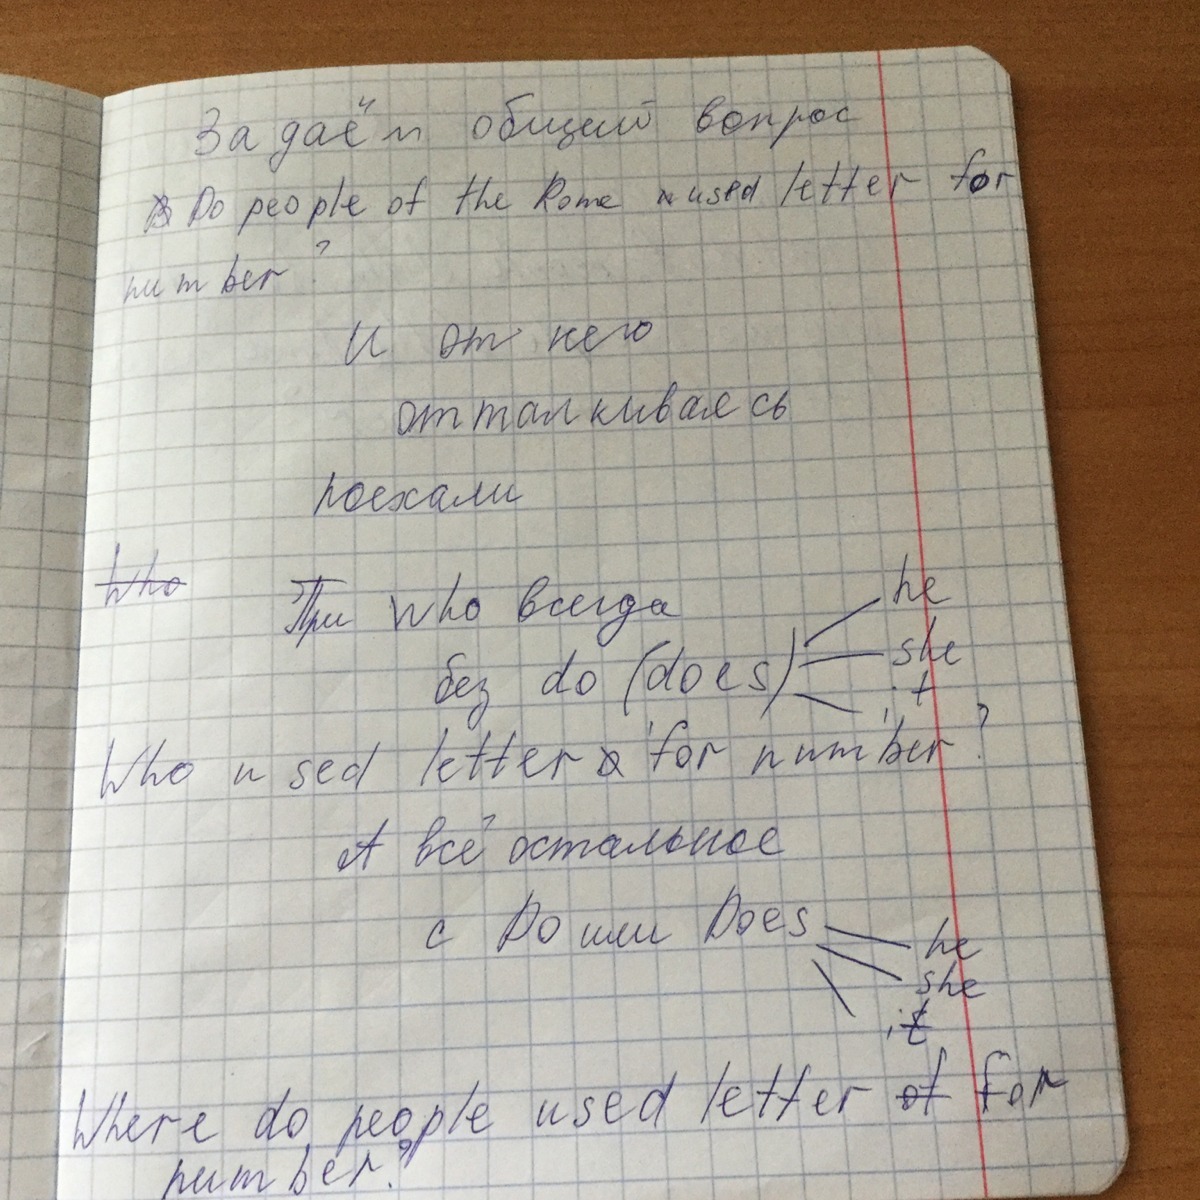 Задаём общий вопрос
Do people of the Rome used letter for
number?
И от него
отталкиваясь
поехали
Who При who всегда he
без do (does) she
it
Who used letter for number?
А всё остальное
с Do или Does
he
she
it
Where do people used letter of for
number?